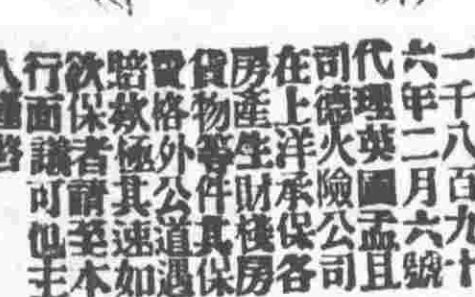 一千八百九十
六年二月六號
代理英國孟且
司德火險公司
在上洋承保各
房產生財棧房
貨物等件其保
費格外公道遇
賠欵極其速如
欲保者請至本
行面議可也主